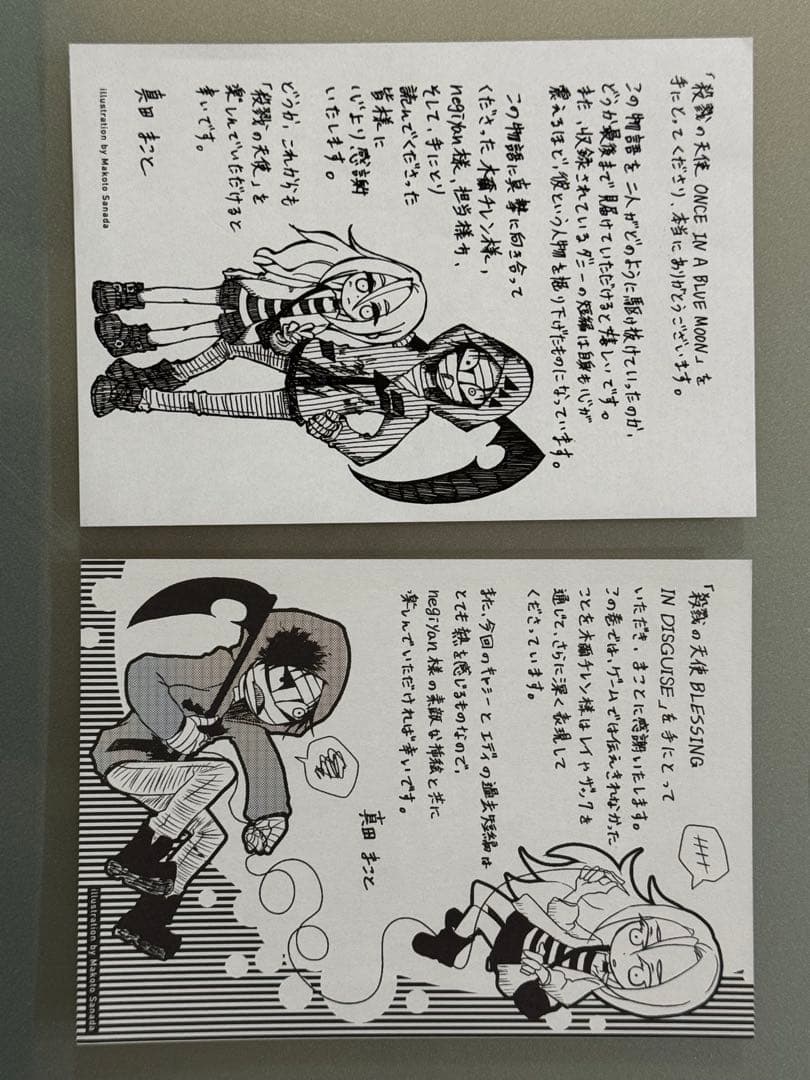 「殺戮の天使 ONCE IN A BLUE MOON」を
手にとってくださり、本当にありがとうございます。
この物語を二人がどのように駆け抜けていったのか、
どうか最後まで見届けていただけると嬉しいです。
また、収録されているダニーの短編は身も心が
震えるほど、彼という人物を掘り下げたものになっています。
この物語に真摯に向き合って
くださった木爾チレン様、
negiyan様、担当様方、
そして、手にとり
読んでくださった
皆様に
心より感謝
いたします。
どうか、これからも
「殺戮の天使」を
楽しんでいただけると
幸いです。
真田 まこと
illustration by Makoto Sanada
「殺戮の天使 BLESSING
IN DISGUISE」を手にとって
いただき、まことに感謝いたします。
この巻では、ゲームでは伝えきれなかった
ことを木爾チレン様はレイやザックを
通じて、さらに深く表現して
くださっています。
また、今回のキャシーとエディの過去短編は
とても熱を感じるものなので、
negiyan様の素敵な挿絵と共に
楽しんでいただければ幸いです。
真田 まこと
illustration by Makoto Sanada